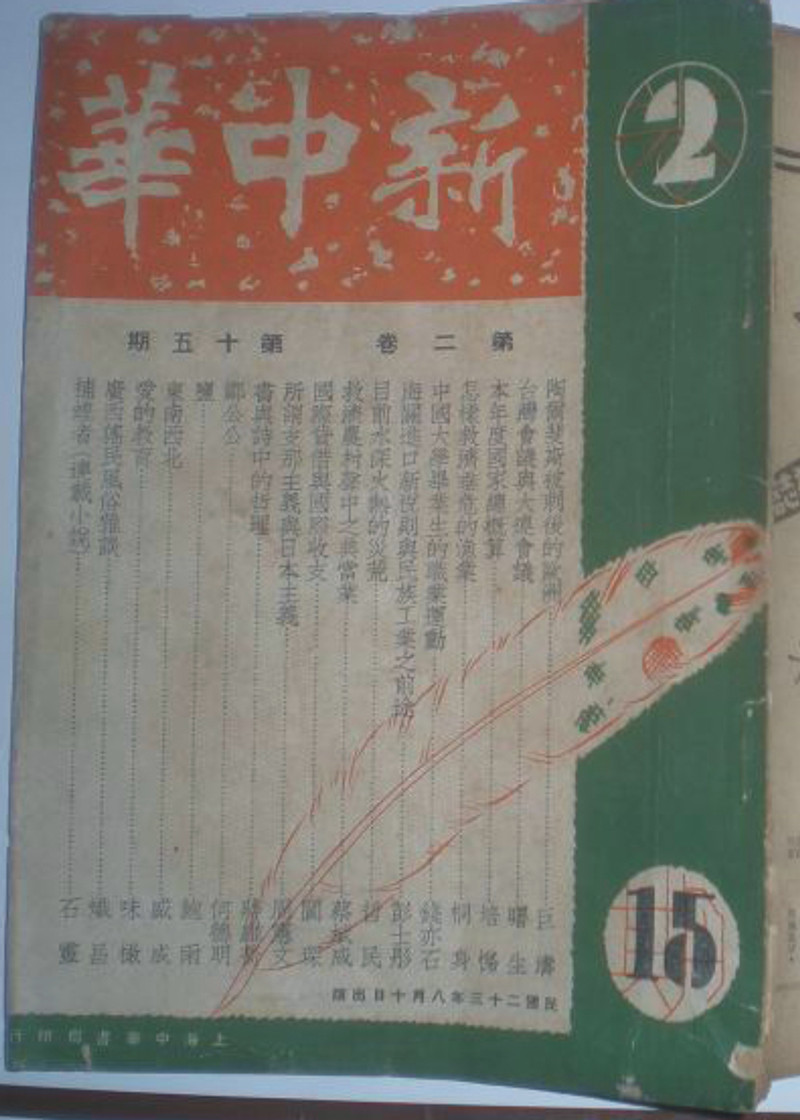 新中華
2
第二卷 第十五期
陶爾斐斯被刺後的歐洲 巨膚
台灣會議與大連會議 曙生
本年度國家總概算 培悌
怎樣救濟垂危的漁業 恫身
中國大學畢業生的職業運動 錢亦石
海關進口新稅則與民族工業之前途 彭士彤
目前水深火熱的災荒 哲民
救濟農村聲中之典當業 蔡斌咸
國際貸借與國際收支
所謂支那主義與日本主義 周憲文
書與詩中的哲理
鄉公公 何德明
鹽 鮑雨
東南西北 威成
愛的教育 味橄
廣西傜民風俗雜談
捕蝗者（連載小說） 石靈
民國二十三年八月十日出版
上海中華書局印行
期
15